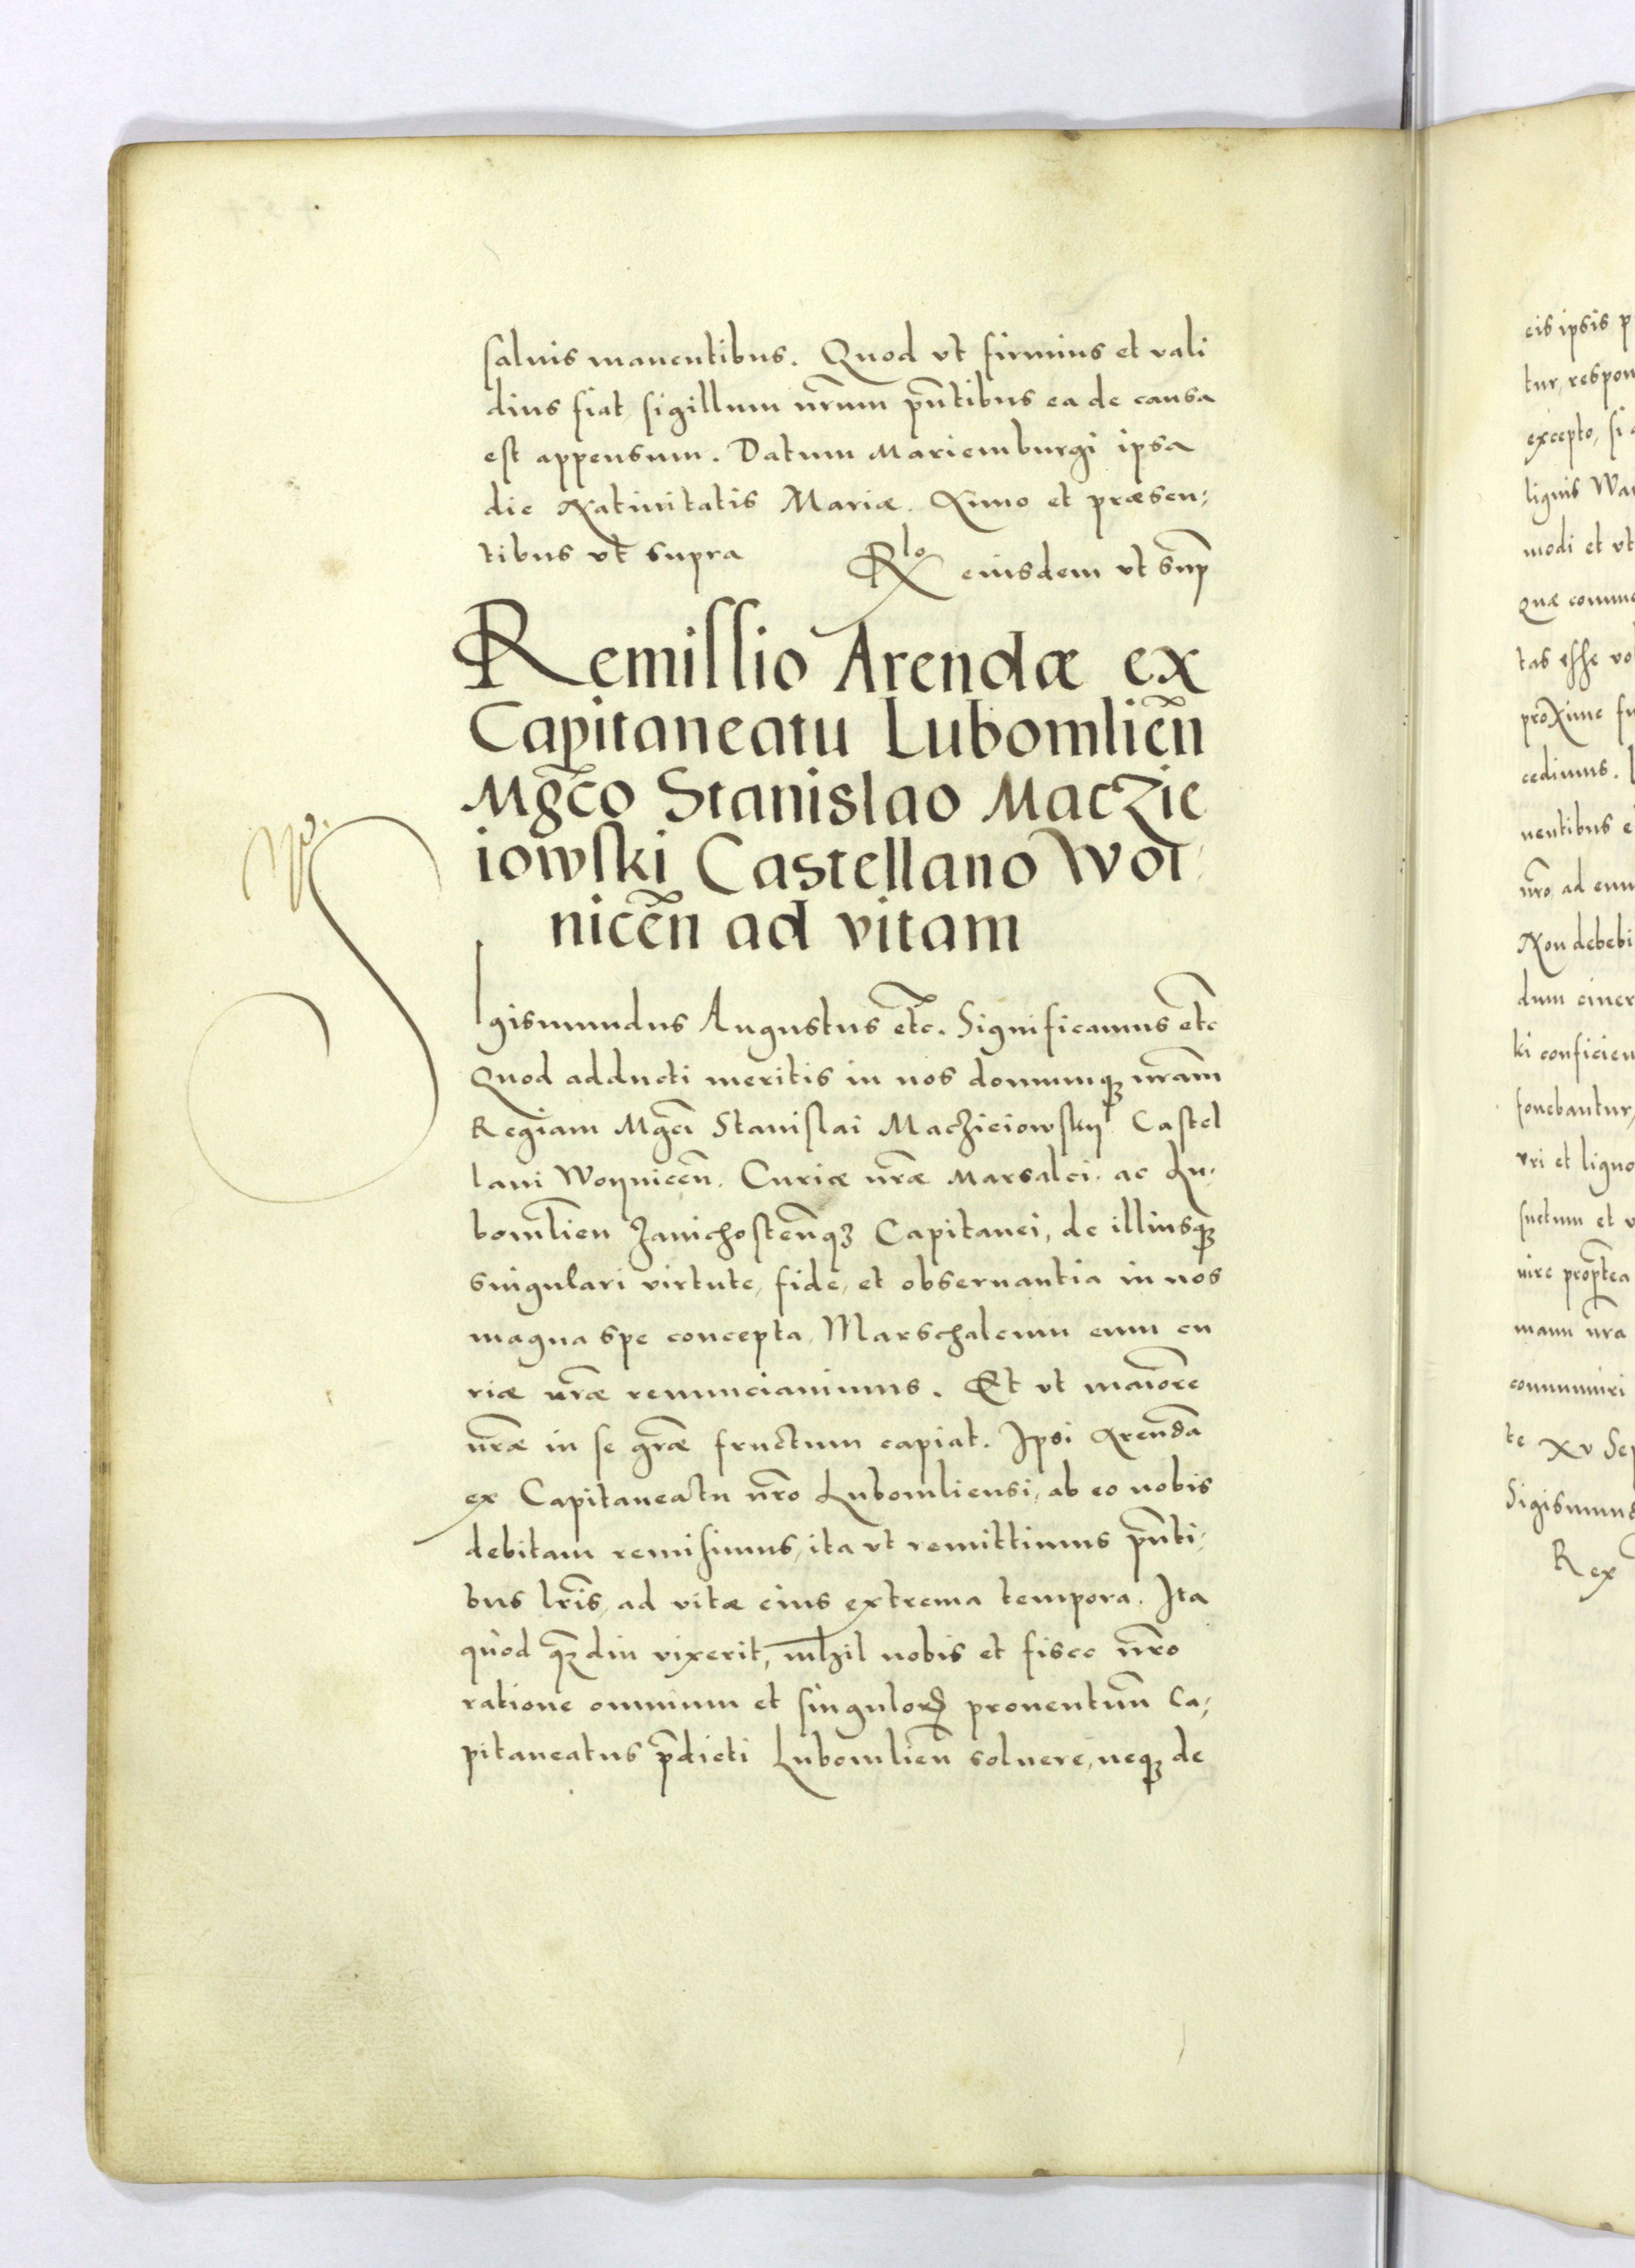 saluis manentibus. Quod vt firmius et vali
dius fiat, sigillum nr̃um pñtibus ea de causa
est appensum. Datum Mariemburgi ipsa
die Natiuitatis Mariæ. Anno et præsen:
tibus vt supra
Rlo eiusdem vt sup
Remissio Arendæ ex
Capitaneatu Lubomlień
Mgco Stanislao Maczie
iowski Castellano Woi
niceñ ad vitam
Sigismundus Augustus etc. Significamus etc
Quod adducti meritis in nos domumq; nr̃am
Regiam Mgci Stanislai Maczieiowskÿ Castel
lani Woynicen̄. Curiæ nr̃æ Marsalci. ac Lu-
bomlien̄ Zanichosten̄q; Capitanei, de illiusq;
singulari virtute, fide, et obseruantia in nos
magna spe concepta, Marschalcum eum cu
riæ nr̃æ renunciauimus. Et vt maiorē
nr̃æ in se gr̃æ fructum capiat. Ipsi Arendā
ex Capitaneatu nr̃o Lubomliensi, ab eo nobis
debitam remisimus, ita vt remittimus pñti-
bus lr̃is, ad vitæ eius extrema tempora. Ita
quod q̃diu vixerit, nihil nobis et fisco nr̃o
ratione omnium et singulorꝝ prouentuū Ca-
pitaneatus p̄dicti Lubomlien̄ soluere, neq; de
eis ipsis p
tur, respon
excepto, si
lignis Wa
modi et vt
Quæ comm
tas esse vo
proxime fu
cedimus.
nentibus e
nr̃o ad eum
Non debebi
dum ciner
ki conficien
fouebantur,
uri et ligno
suetum et v
nire propterea
manu nr̃a
communiri
te XV Sep
Sigismund
Rex